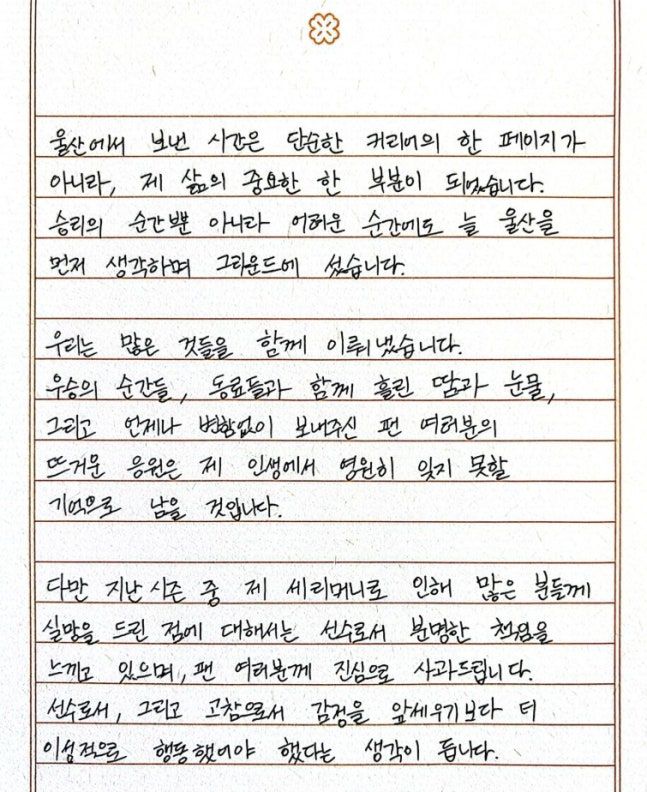 울산에서 보낸 시간은 단순한 커리어의 한 페이지가
아니라, 제 삶의 중요한 한 부분이 되었습니다.
승리의 순간뿐 아니라 어려운 순간에도 늘 울산을
먼저 생각하며 그라운드에 섰습니다.
우리는 많은 것들을 함께 이뤄냈습니다.
우승의 순간들, 동료들과 함께 흘린 땀과 눈물,
그리고 언제나 변함없이 보내주신 팬 여러분의
뜨거운 응원은 제 인생에서 영원히 잊지 못할
기억으로 남을 것입니다.
다만 지난 시즌 중 제 세리머니로 인해 많은 분들께
실망을 드린 점에 대해서는 선수로서 분명한 책임을
느끼고 있으며, 팬 여러분께 진심으로 사과드립니다.
선수로서, 그리고 고참으로서 감정을 앞세우기보다 더
이성적으로 행동했어야 했다는 생각이 듭니다.